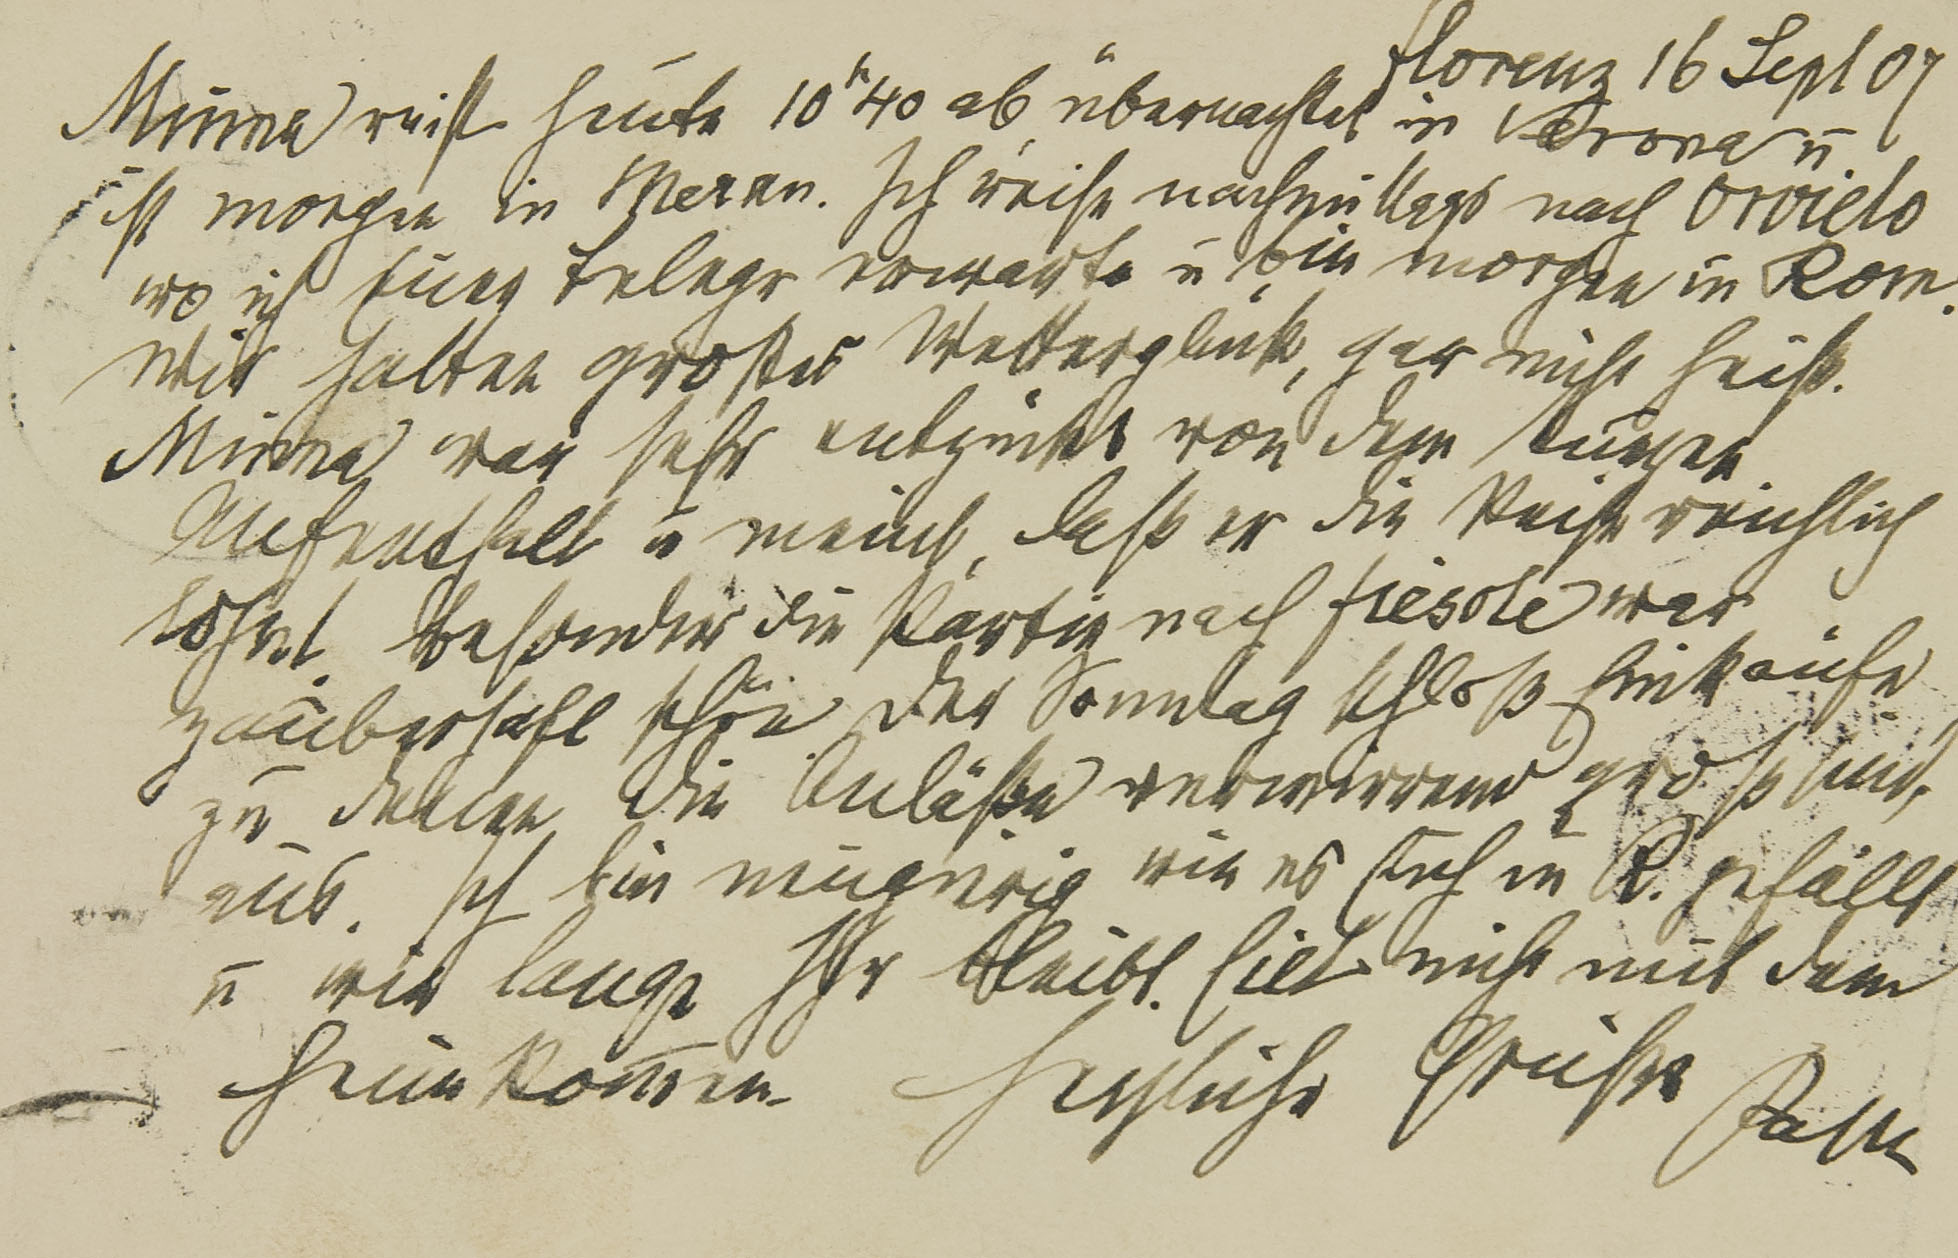 Florenz 16 Sept 07
Minna reist heute 10h40 ab, übernachtet in Verona u
ist morgen in Meran. Ich reise nachmittags nach Orvieto
wo ich Euer Telegr erwarte u bin morgen in Rom.
Wir hatten großes Wetterglück, gar nicht heiß.
Minna war sehr entzückt von dem kurzen
Aufenthalt u meint, daß er die Reise reichlich
lohnt. Besonders die Partie nach Fiesole war
zauberhaft schön. Der Sonntag schloß Einkäufe,
zu denen die Anläße verwirrend groß sind,
aus. Ich bin neugierig wie es Euch in R. gefällt
u wie lange Ihr bleibt. Eilt nicht mit dem
Heimkom̄en. Herzliche Grüße
Papa